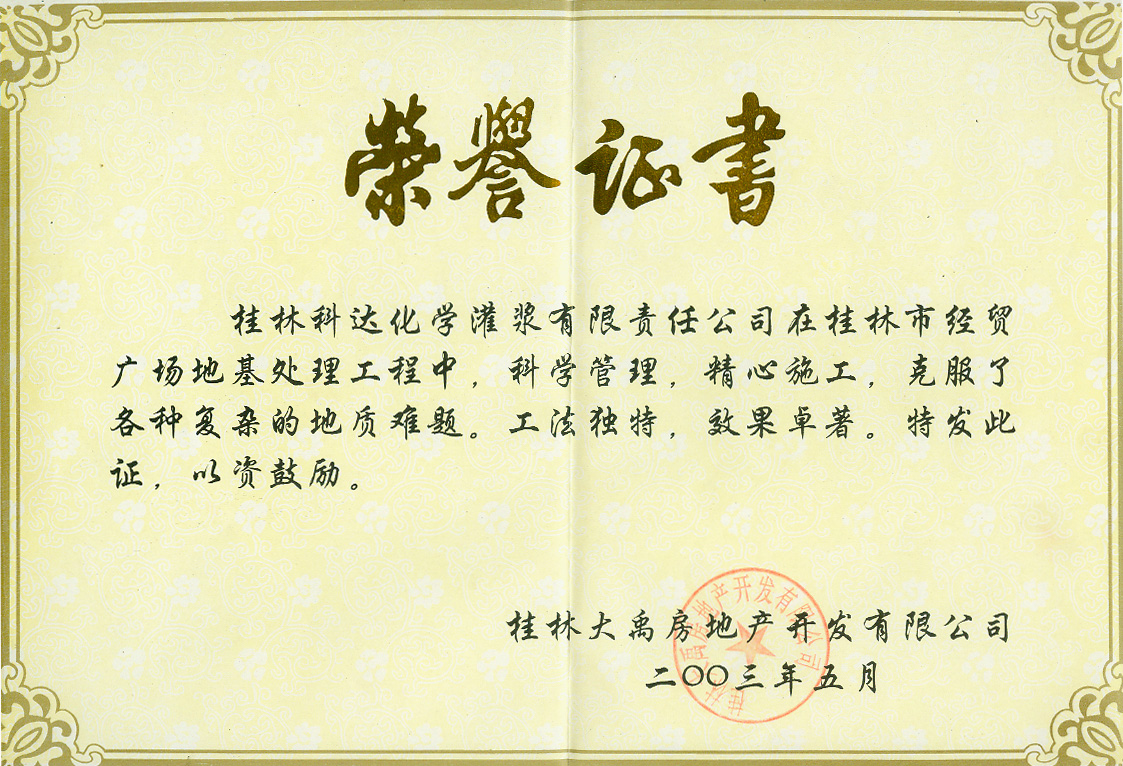 荣誉证书
桂林科达化学灌浆有限责任公司在桂林市经贸
广场地基处理工程中，科学管理，精心施工，克服了
各种复杂的地质难题。工法独特，效果卓著。特发此
证，以资鼓励。
桂林大禹房地产开发有限公司
二〇〇三年五月
桂林大禹房地产开发有限公司